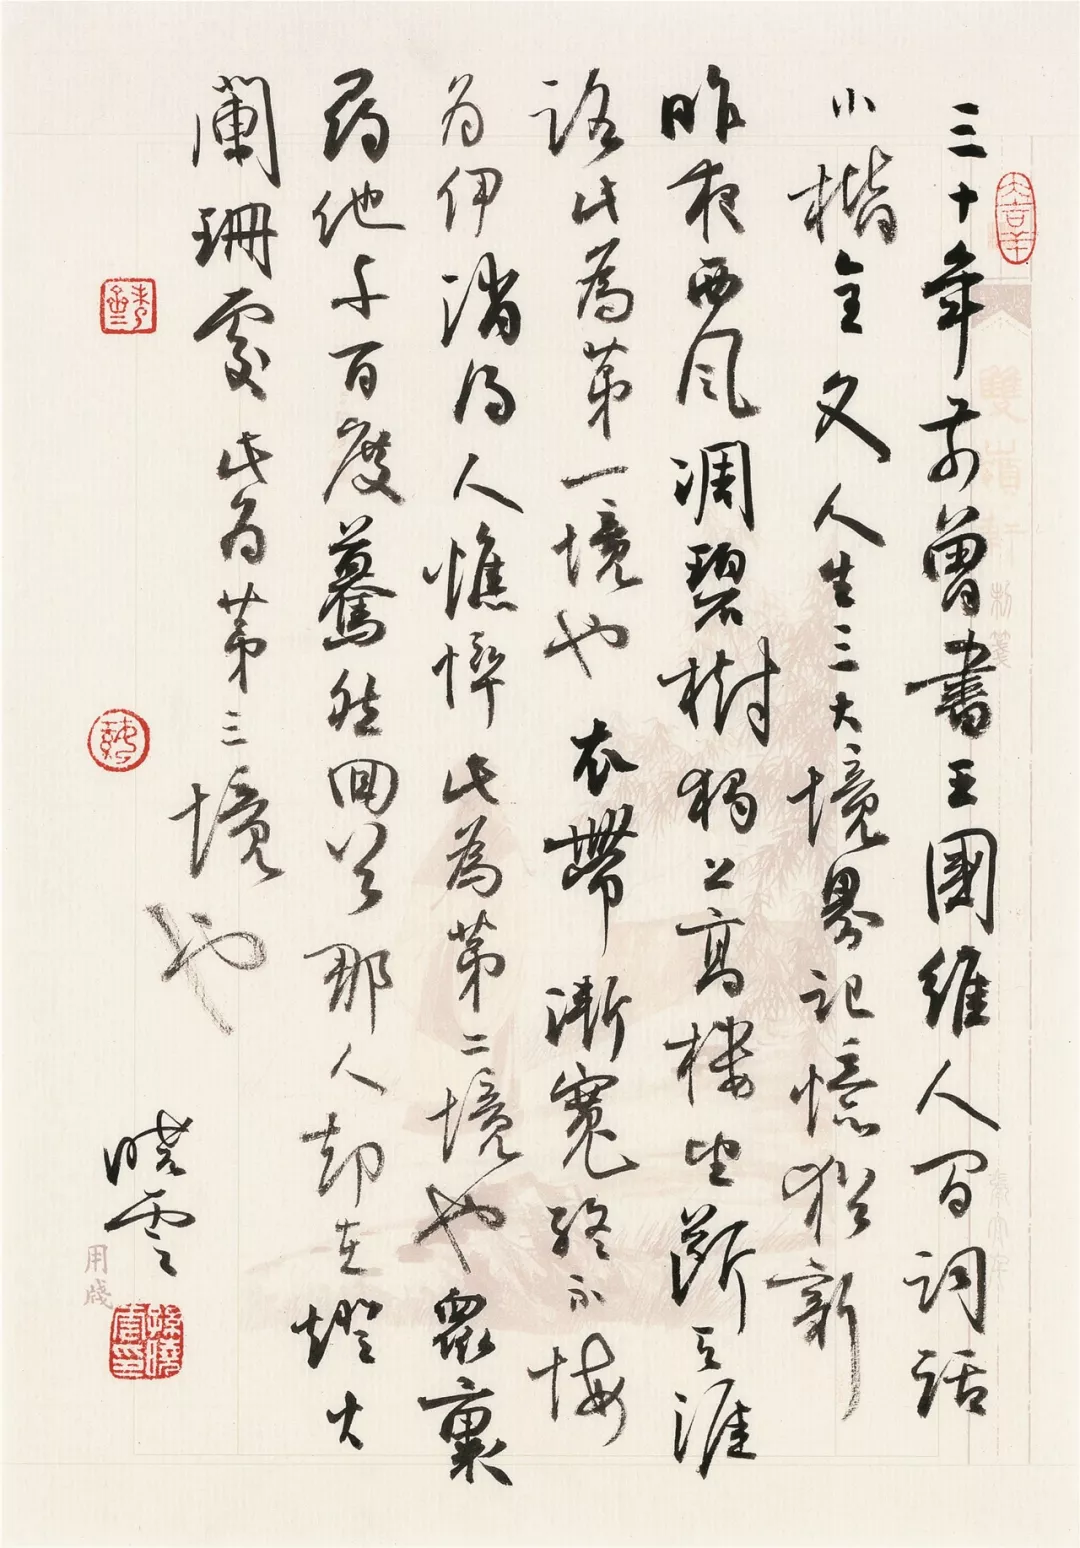 三十年前曾書王國維人間詞話
小楷全文人生三大境界記憶猶新
昨夜西風凋碧樹獨上高樓望斷天涯
路此為第一境也 衣帶漸寬終不悔
為伊消得人憔悴此為第二境也眾裏
尋他千百度驀然回首那人却在燈火
闌珊處此為第三境也
曉雲
雙
用箋